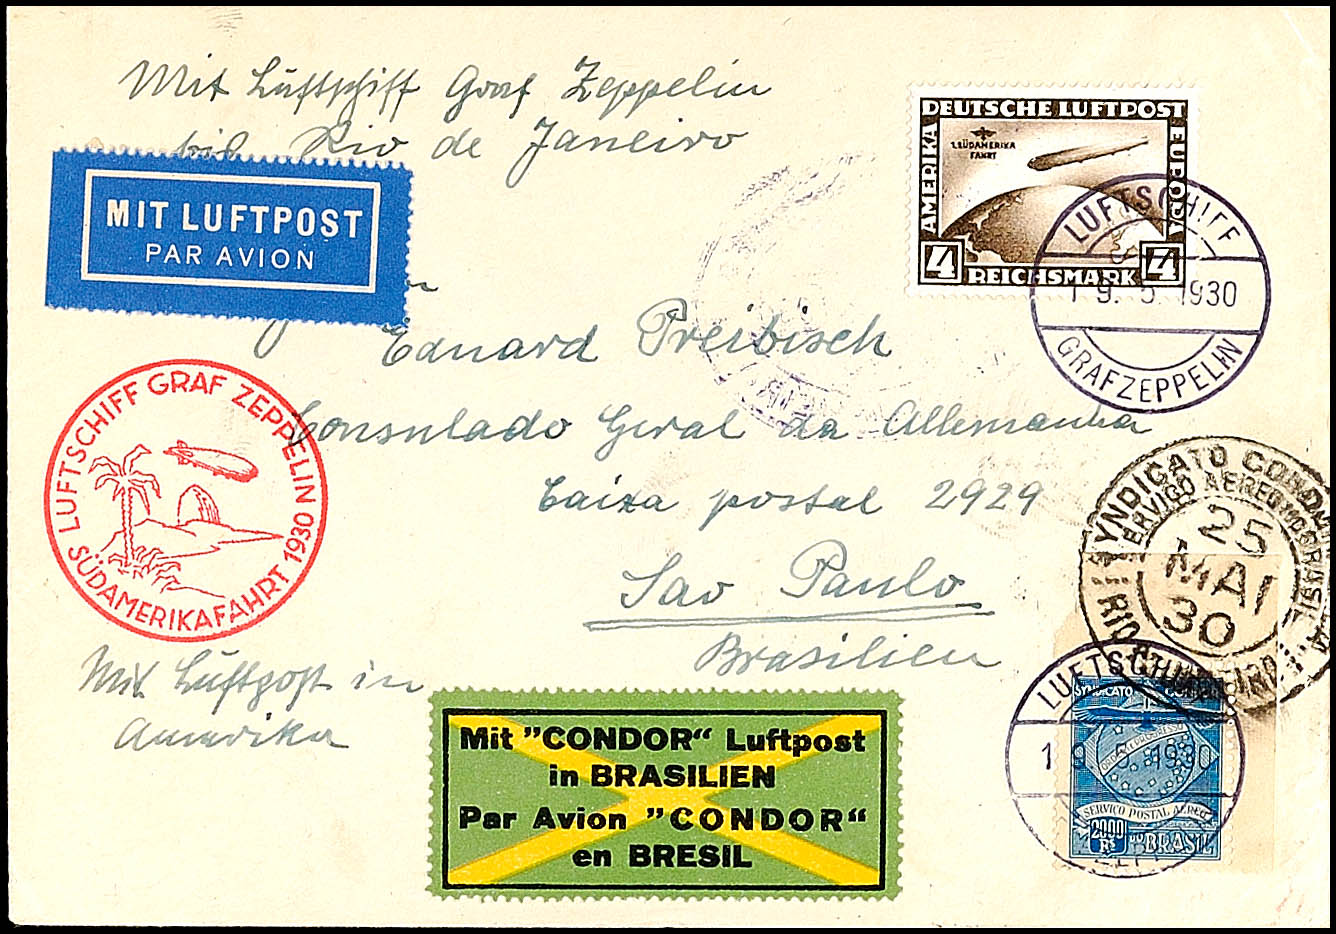 Mit Luftschiff Graf Zeppelin
bis Rio de Janeiro
MIT LUFTPOST
PAR AVION
DEUTSCHE LUFTPOST
AMERIKA
EUROPA
1. SÜDAMERIKA
FAHRT
4 REICHSMARK 4
LUFTSCHIFF
19. 5. 1930
GRAFZEPPELIN
Eduard Preibisch
Consulado Geral da Allemanha
Caixa postal 2929
Sao Paulo
Brasilien
LUFTSCHIFF GRAF ZEPPELIN
SÜDAMERIKAFAHRT 1930
SYNDICATO CONDOR
SERVIÇO AEREO
25
MAI
30
RIO
Mit Luftpost in
Amerika
Mit "CONDOR" Luftpost
in BRASILIEN
Par Avion "CONDOR"
en BRESIL
LUFTSCHIFF
19. 5. 1930
SYNDICATO CONDOR
ORDEM E PROGRESSO
SERVIÇO POSTAL AEREO
2000 Rs DO BRASIL